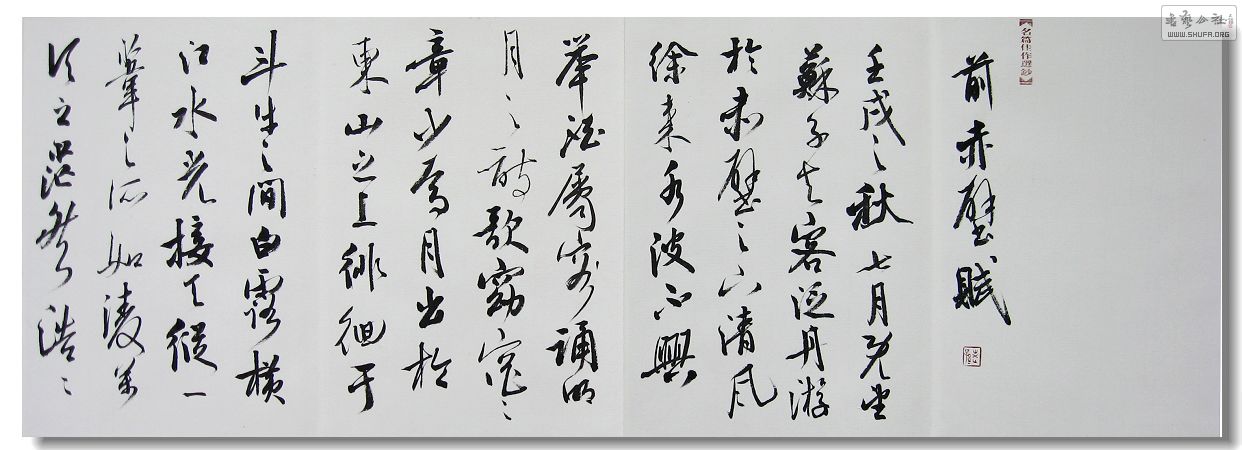 書藝公社
WWW.SHUFA.ORG
【名篇佳作選鈔】
前赤壁賦
壬戌之秋七月既望
蘇子与客泛舟游
於赤壁之下清風
徐來水波不興
舉酒屬客誦明
月之詩歌窈窕之
章少焉月出於
東山之上徘徊于
斗牛之間白露橫
江水光接天縱一
葦之所如凌萬
頃之茫然浩々